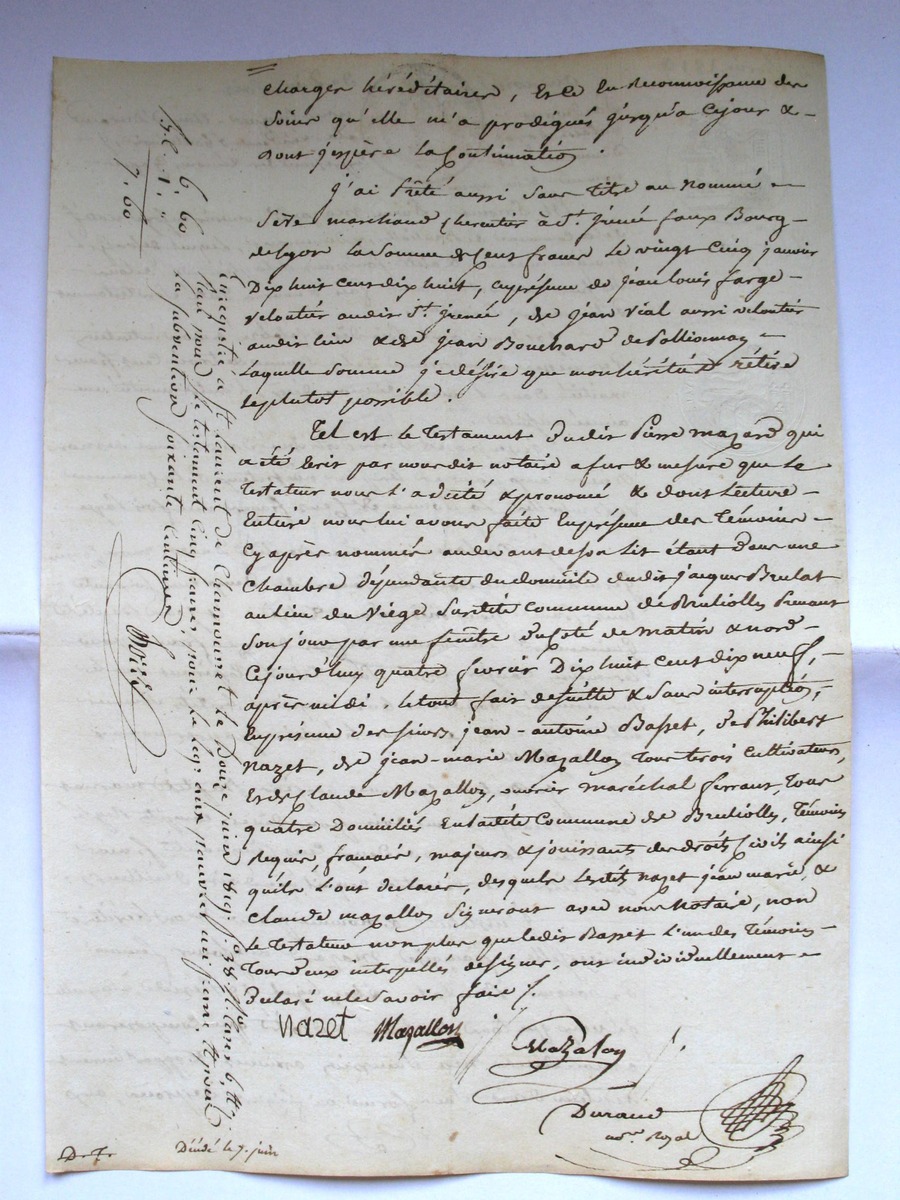 charges héréditaires, Et ce En Reconnoissance des
soins qu'elle m'a prodigués jusqu'a cejour &
dont j'espère la Continuation.
j'ai Prêté aussi sans titre au nommé
Sève marchand à St. jrénée faux Bourg
de Lyon la somme de Cent francs le vingt cinq janvier
Dix huit cent dix huit, en présence de jean louis farge
veloutier audit St. jrenée, de jean vial aussi veloutier
audit lieu & de jean Bouchard de Pollionnay
Laquelle somme je désire que mon héritière retire
leplutot possible.
Tel est le Testament dudit Pierre mazard qui
a été Ecrit par nousdit notaire a fur & mesure que le
Testateur nous l'a dicté & prononcé & dont Lecture
Entière nous lui avons faite En présence des Témoins
Cy après nommés audevant de son lit étant dans une
chambre dépendante du domicile dudit jacques Brulat
au lieu du Viége susdite Commune de Brulioles Prenant
son jour par une fenêtre du Coté de matin & nord
Cejourd'huy quatre fevrier Dix huit Cent dix neuf,
après midi, le tout fait desuitte & sans interruption,
En présence des sieurs jean-antoine Basset, de Philibert
Nazet, de jean-marie Mazallon tous trois Cultivateurs,
Et de Claude Mazallon, ouvrier maréchal ferrant, Tous
quatre Domiciliés En ladite Commune de Brulioles, Témoins
Requis, français, majeurs & jouissants des droits Civils ainsi
qu'ils l'ont déclaré, desquels lesdits nazet jean marie, &
Claude mazallon signeront avec nous Notaire, non
le Testateur non plus que ledit Basset l'un des Témoins
Tous deux interpellés de signer, ont individuellement
Declaré ne le savoir faire /.
Nazet Mazallon
Mazalon
Durand
not.re Royal
6. 60
1. "
7. 60
Enregistré à St laurent de Chamousset le Douze juin 1819. f.o 38. R.o Cases 6,
Reçu pour le testament cinq francs, pour le legs aux pauvres un franc, & pour
la subvention soixante Centimes
Décédé le 7. juin